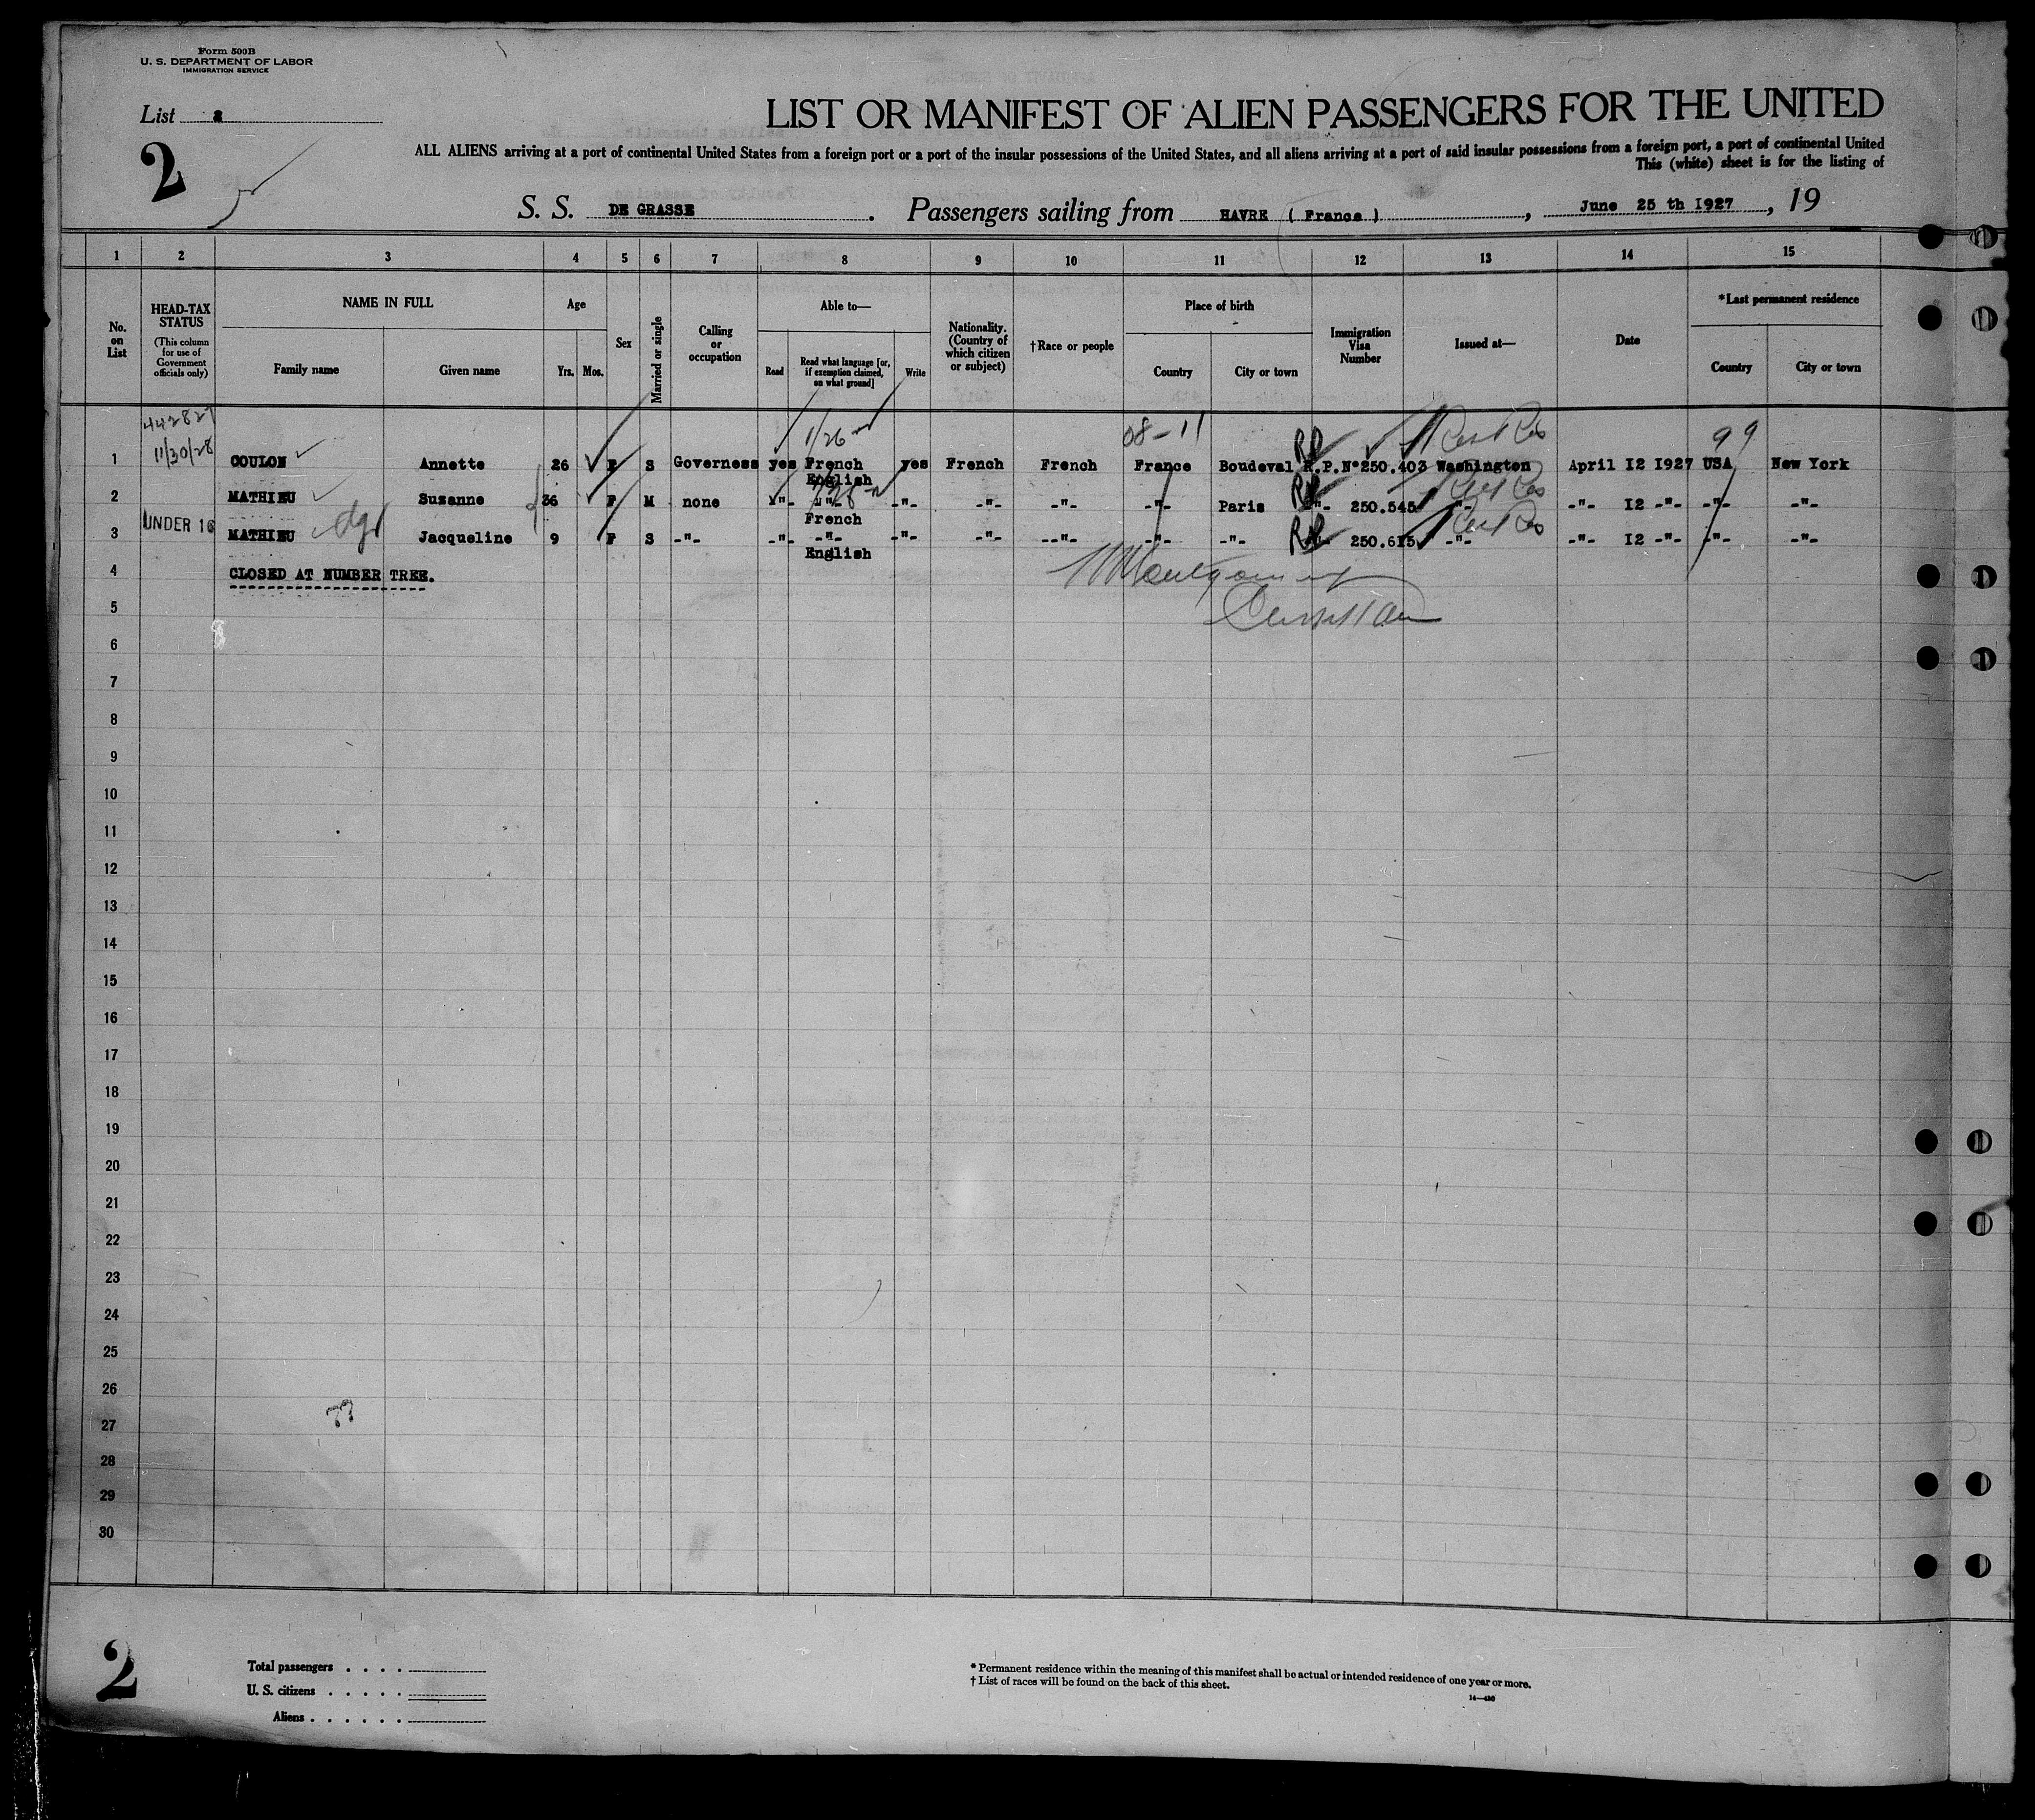 Form 500B
U. S. DEPARTMENT OF LABOR
IMMIGRATION SERVICE
List 2
LIST OR MANIFEST OF ALIEN PASSENGERS FOR THE UNITED
ALL ALIENS arriving at a port of continental United States from a foreign port or a port of the insular possessions of the United States, and all aliens arriving at a port of said insular possessions from a foreign port, a port of continental United
This (white) sheet is for the listing of
2
S. S. DE GRASSE . Passengers sailing from HAVRE ( France ) , June 25 th 1927 , 19
1 2 3 4 5 6 7 8 9 10 11 12 13 14 15
No. on List
HEAD-TAX STATUS (This column for use of Government officials only)
NAME IN FULL Family name Given name
Age Yrs. Mos.
Sex
Married or single
Calling or occupation
Able to— Read Read what language [or, if exemption claimed, on what ground] Write
Nationality. (Country of which citizen or subject)
†Race or people
Place of birth Country City or town
Immigration Visa Number
Issued at—
Date
*Last permanent residence Country City or town
442827
11/30/28
1/26
08-11
RP
99
1 COULON Annette 26 F S Governess yes French English yes French French France Boudeval R.P.N°250.403 Washington April I2 I927 USA New York
2 MATHIEU Suzanne 36 F M none -"- -"- French -"- -"- -"- -"- Paris RP -"- 250.545 -"- -"- I2 -"- -"- -"-
UNDER 16
3 MATHIEU Jacqueline 9 F S -"- -"- -"- English -"- -"- --"- -"- -"- RP -"- 250.615 -"- -"- I2 -"- -"- -"-
4 CLOSED AT NUMBER TREE.
5
6
7
8
9
10
11
12
13
14
15
16
17
18
19
20
21
22
23
24
25
26
27
28
29
30
2
Total passengers
U. S. citizens
Aliens
* Permanent residence within the meaning of this manifest shall be actual or intended residence of one year or more.
† List of races will be found on the back of this sheet.
14—430